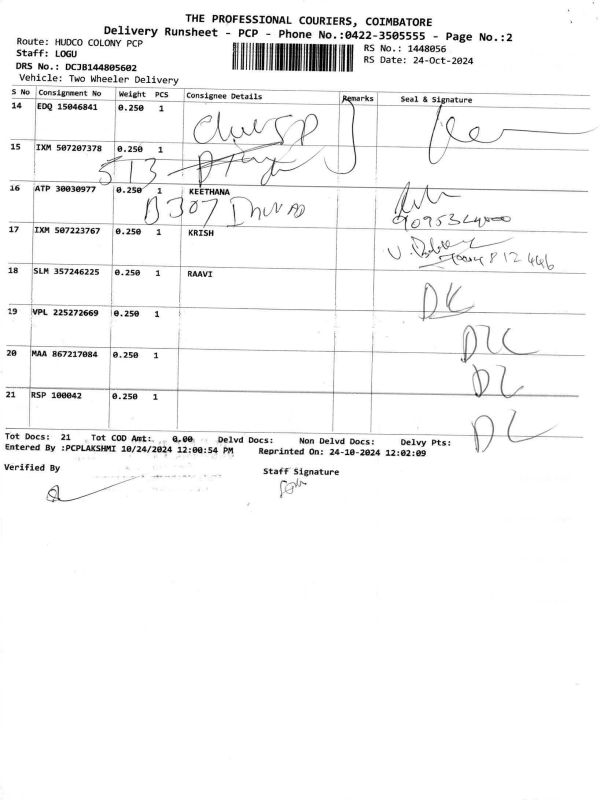 THE PROFESSIONAL COURIERS, COIMBATORE
Delivery Runsheet - PCP - Phone No.:0422-3505555 - Page No.:2
Route: HUDCO COLONY PCP
RS No.: 1448056
Staff: LOGU
RS Date: 24-Oct-2024
DRS No.: DCJB144805602
Vehicle: Two Wheeler Delivery
S No Consignment No Weight PCS Consignee Details Remarks Seal & Signature
14 EDQ 15046841 0.250 1
15 IXM 507207378 0.250 1
513
16 ATP 30030977 0.250 1 KEETHANA
B 307
17 IXM 507223767 0.250 1 KRISH
18 SLM 357246225 0.250 1 RAAVI
19 VPL 225272669 0.250 1
20 MAA 867217084 0.250 1
21 RSP 100042 0.250 1
Tot Docs: 21 Tot COD Amt: 0.00 Delvd Docs: Non Delvd Docs: Delvy Pts:
Entered By :PCPLAKSHMI 10/24/2024 12:00:54 PM Reprinted On: 24-10-2024 12:02:09
Verified By
Staff Signature